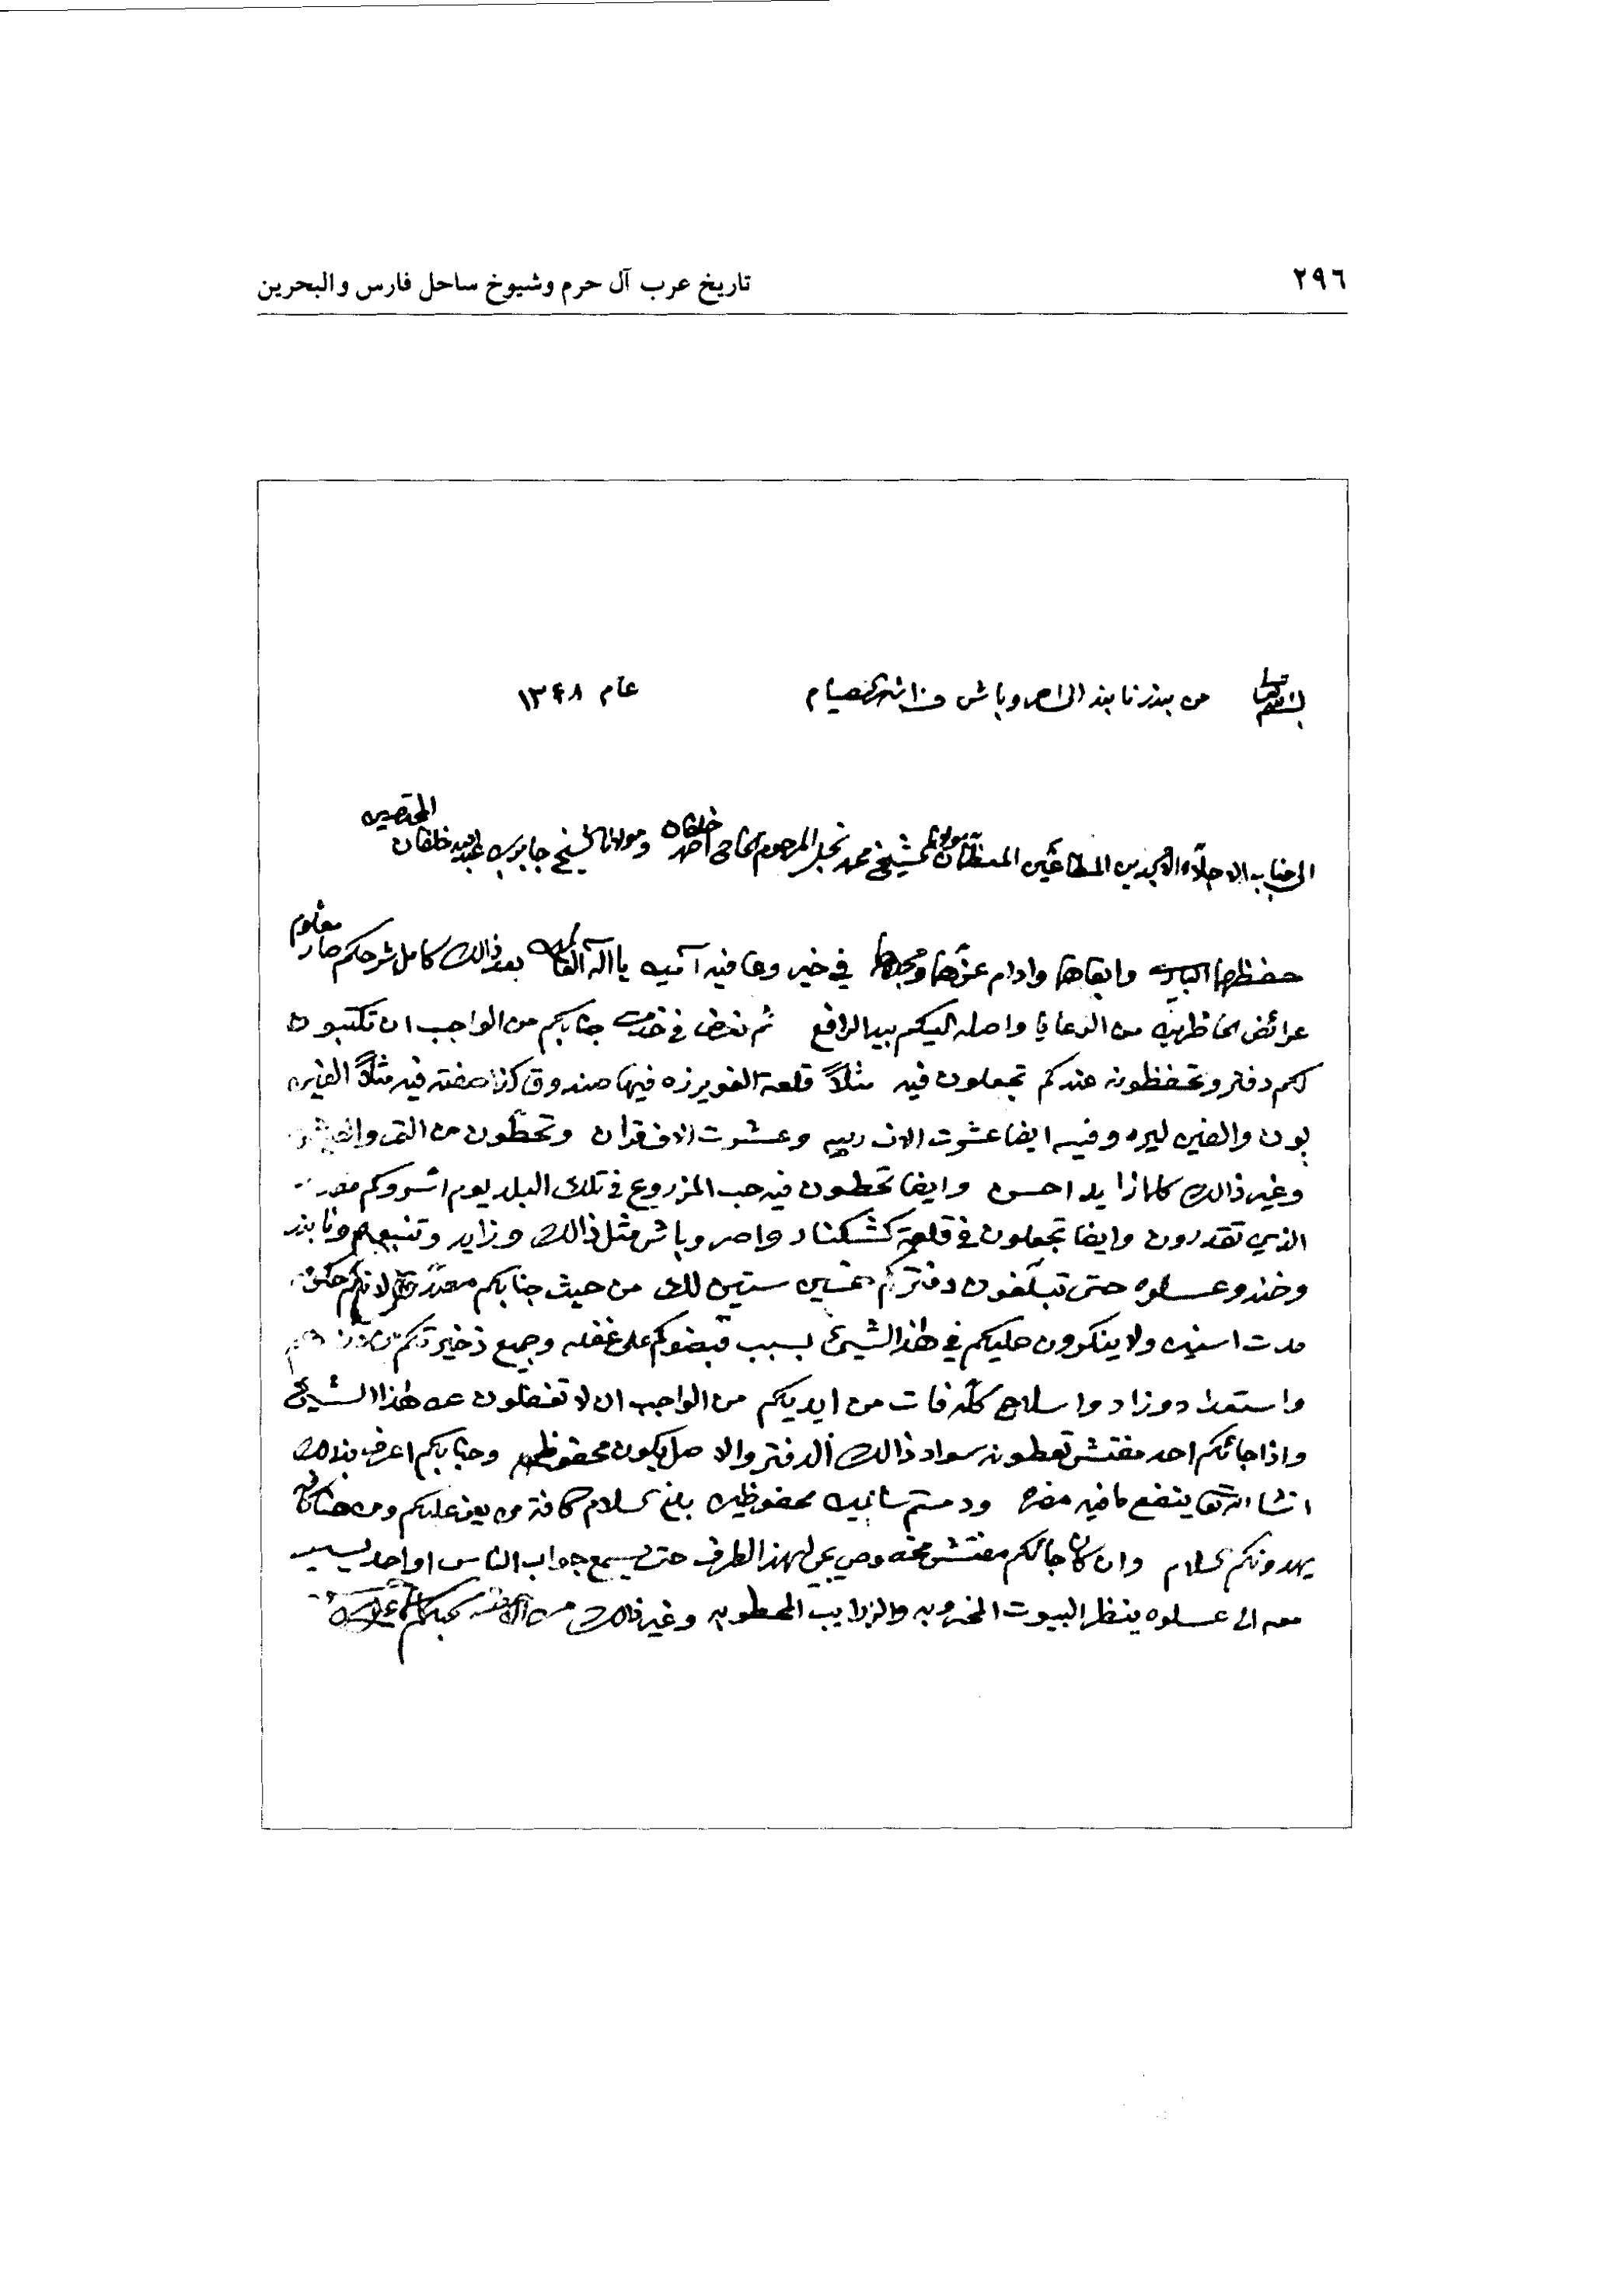 ٢٩٦
تاريخ عرب آل حرم وشيوخ ساحل فارس والبحرين
من بندر نابند الى اصروباش صيام عام ١٣٤٨
الى جناب الاجلاء الامجدين شيخ محمد نجل المرحوم الحاجي احمد خلفان ومولانا الشيخ جابر بن عبدالله خلفان المحترمين
حفظهما الباري وابقاهما وادام عزهما ومجدهما في خير وعافيه آمين يا اله العالمين بعد ذالك كامل شرحكم صار معلوم
من الدعايا واصله اليكم بيد الرافع ثم نعرض في خدمت جنابكم من الواجب ان تكتبون
لكم دفتر وتحفظونه عندكم تجعلون فيه مثلاً قلعة الغويرزه فيها صندوق كذا صفته فيه مثلاً الفين
بون والفين ليره وفيه ايضا عشرت الاف ربيه وعشرت الاف قران وتحطون من التمر والعيش
وغير ذالك كلما زايد احسن وايضا تحطون فيه حب المزروع في تلك البلد يوم
الذي تقدرون وايضا تجعلون في قلعة كشكنار واصروباش مثل ذالك وزايد ونابند
وعسلوه حتى تبلغون دفتركم خمسين ستين لك من حيث جنابكم
مدت اسنين ولا ينكرون عليكم في هذا الشيئ بسبب قبضوكم على غفله وجميع ذخيرتكم
واستعداد وزاد واسلاح كله فات من ايديكم من الواجب ان لا تغفلون عن هذا الشيئ
واذا جائكم احد مفتش تعطونه سواد ذالك الدفتر والاصل يكون محفوظ وجنابكم اعرف بذالك
انشا الله ينفع مافيه مضره ودمتم سالمين محفوظين بلغ السلام كافة من يعز عليكم ومن هنا
يهدونكم السلام وان كان جائكم مفتش مخصوص يجي لهذا الطرف حتى يسمع جواب الناس او احد يسير
معه الى عسلوه ينظر البيوت المخروبه وغير ذالك